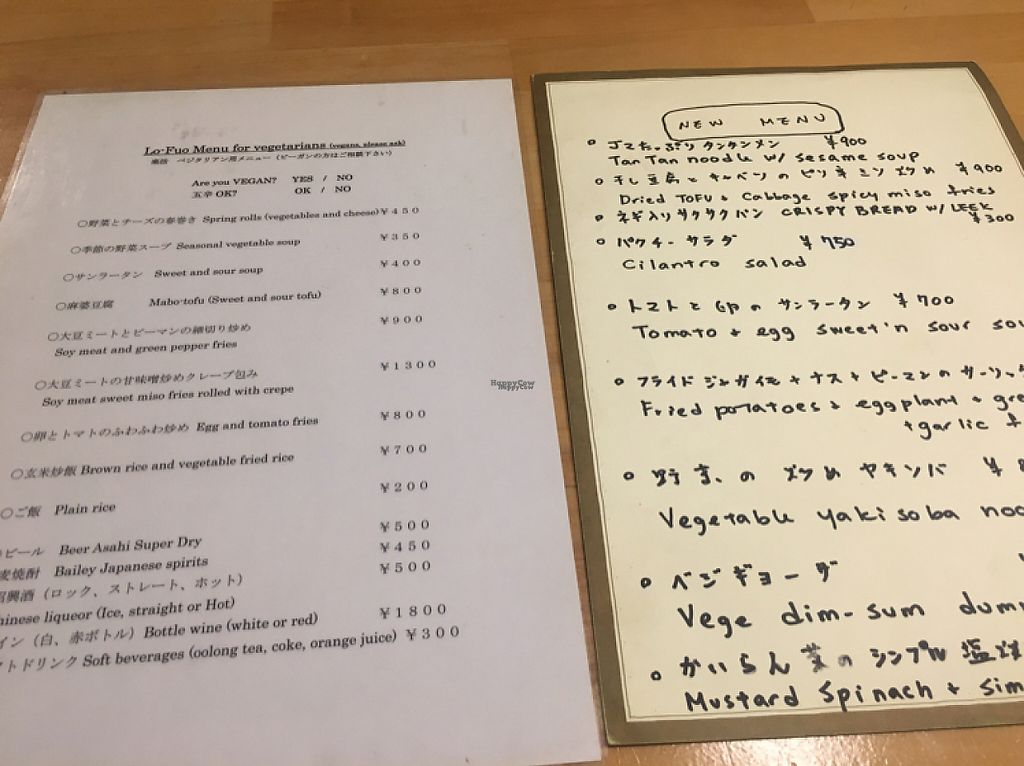 Lo-Fuo Menu for vegetarians (vegans, please ask)
ベジタリアン用メニュー(ビーガンの方はご相談下さい)
Are you VEGAN? YES / NO
五辛OK? OK / NO
○野菜とチーズの春巻き Spring rolls (vegetables and cheese) ¥450
○季節の野菜スープ Seasonal vegetable soup ¥350
○サンラータン Sweet and sour soup ¥400
○麻婆豆腐 Mabo-tofu (Sweet and sour tofu) ¥800
○大豆ミートとピーマンの細切り炒め ¥900
Soy meat and green pepper fries
○大豆ミートの甘味噌炒めクレープ包み ¥1300
Soy meat sweet miso fries rolled with crepe
○卵とトマトのふわふわ炒め Egg and tomato fries ¥800
○玄米炒飯 Brown rice and vegetable fried rice ¥700
○ご飯 Plain rice ¥200
ビール Beer Asahi Super Dry ¥500
麦焼酎 Bailey Japanese spirits ¥450
紹興酒(ロック、ストレート、ホット) ¥500
hinese liqueur (Ice, straight or Hot)
イン(白、赤ボトル) Bottle wine (white or red) ¥1800
トドリンク Soft beverages (oolong tea, coke, orange juice) ¥300
NEW MENU
ゴマたっぷりタンタンメン ¥900
Tan Tan noodle w/ sesame soup
干し豆腐とキャベツのピリ辛ミソ炒め ¥900
Dried TOFU & Cabbage spicy miso fries
ネギ入りサクサクパン CRISPY BREAD W/ LEEK
¥300
パクチーサラダ ¥750
Cilantro salad
トマトと卵のサンラータン ¥700
Tomato + egg sweet'n sour sou
フライドジャガイモ+ナス+ピーマンのガーリック
Fried potatoes + eggplant + gre
+garlic f
野菜の炒めヤキソバ ¥8
Vegetable yakisoba noo
ベジギョーザ
Vege dim-sum dum
かいらん菜のシンプル塩炒
Mustard Spinach + sim
HappyCow